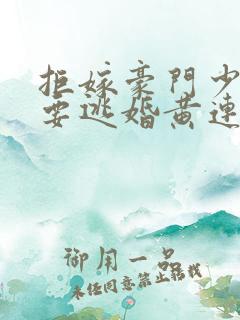 拒嫁豪门少
要逃婚黄连
御用一品
未经同意禁止转载